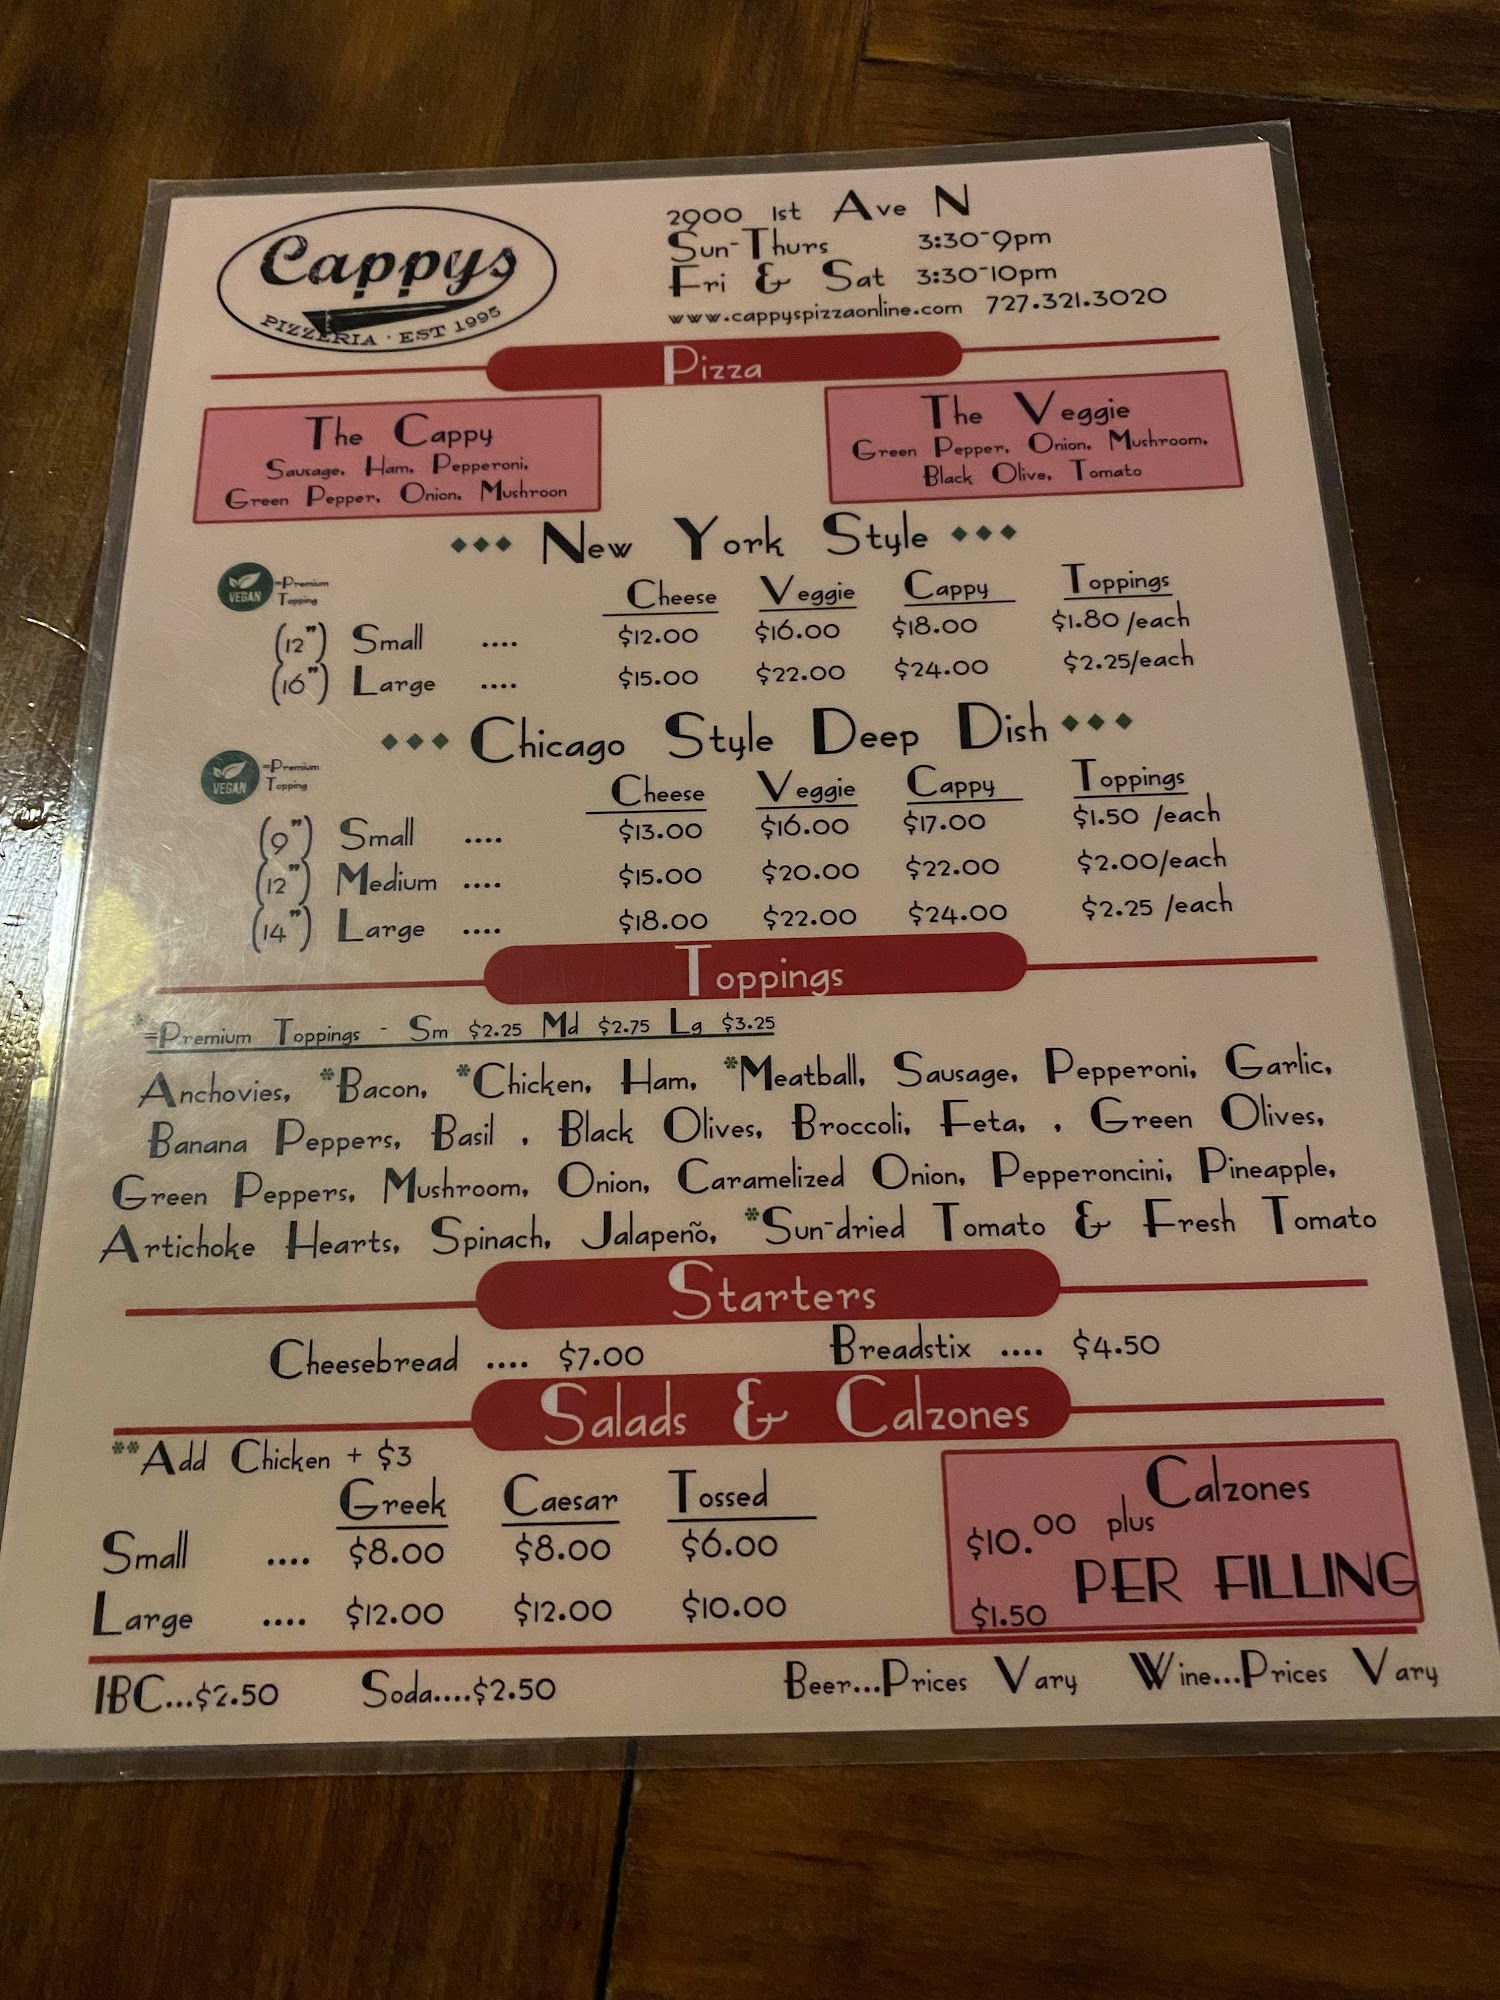 Cappys
PIZZERIA · EST 1995
2900 1st Ave N
Sun-Thurs 3:30-9pm
Fri & Sat 3:30-10pm
www.cappyspizzaonline.com 727.321.3020
Pizza
The Cappy
Sausage, Ham, Pepperoni,
Green Pepper, Onion, Mushroon
The Veggie
Green Pepper, Onion, Mushroom,
Black Olive, Tomato
New York Style
VEGAN =Premium
Topping
Cheese Veggie Cappy Toppings
(12") Small .... $12.00 $16.00 $18.00 $1.80 /each
(16") Large .... $15.00 $22.00 $24.00 $2.25/each
Chicago Style Deep Dish
VEGAN =Premium
Topping
Cheese Veggie Cappy Toppings
(9") Small .... $13.00 $16.00 $17.00 $1.50 /each
(12") Medium .... $15.00 $20.00 $22.00 $2.00/each
(14") Large .... $18.00 $22.00 $24.00 $2.25 /each
Toppings
*=Premium Toppings - Sm $2.25 Md $2.75 Lg $3.25
Anchovies, *Bacon, *Chicken, Ham, *Meatball, Sausage, Pepperoni, Garlic,
Banana Peppers, Basil , Black Olives, Broccoli, Feta, , Green Olives,
Green Peppers, Mushroom, Onion, Caramelized Onion, Pepperoncini, Pineapple,
Artichoke Hearts, Spinach, Jalapeño, *Sun-dried Tomato & Fresh Tomato
Starters
Cheesebread .... $7.00 Breadstix .... $4.50
Salads & Calzones
**Add Chicken + $3
Greek Caesar Tossed
Small .... $8.00 $8.00 $6.00
Large .... $12.00 $12.00 $10.00
Calzones
$10.00 plus
PER FILLING
$1.50
IBC...$2.50 Soda....$2.50 Beer...Prices Vary Wine...Prices Vary